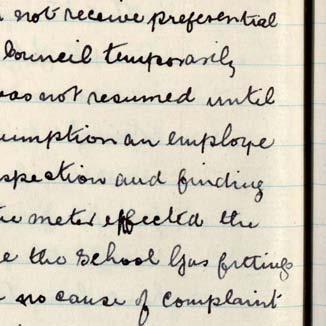 not receive preferential
Council temporarily
was not resumed until
umption an employe
spection and finding
the meter effected the
e the School Gas fittings
no cause of complaint